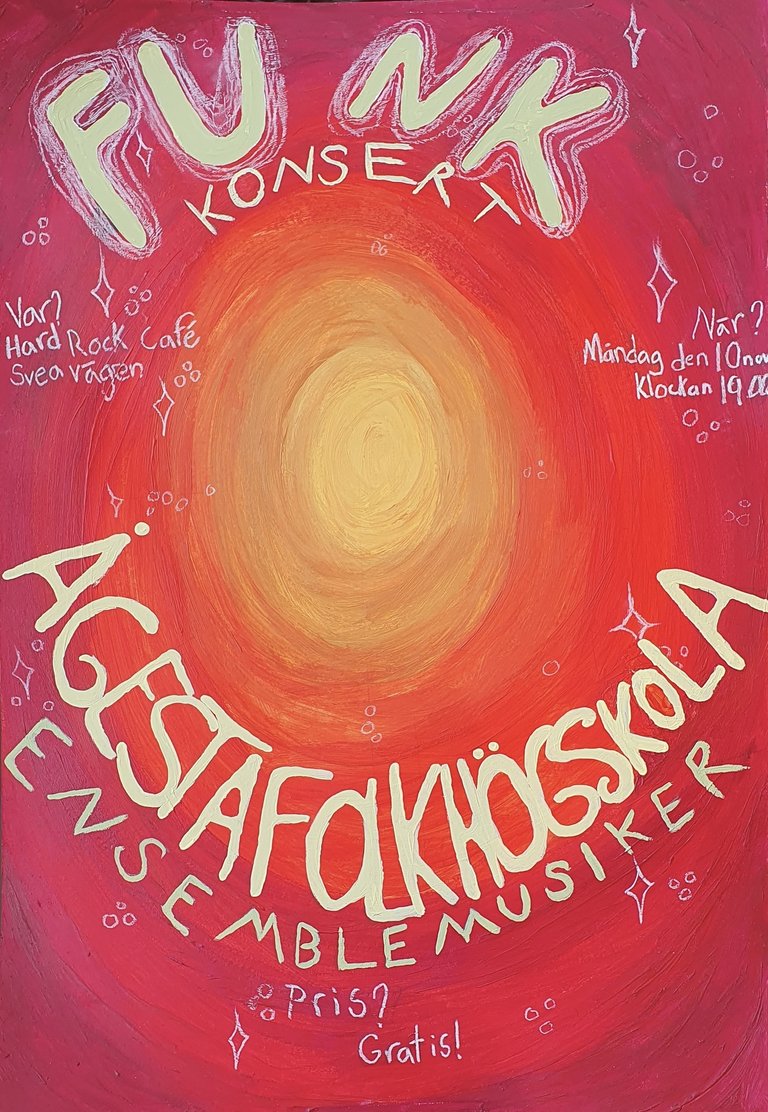 FUNK
KONSERT
Var?
Hard Rock Café
Sveavägen
När?
Måndag den 10 nov
Klockan 19.00
ÅGESTAFOLKHÖGSKOLA
ENSEMBLEMUSIKER
Pris?
Gratis!